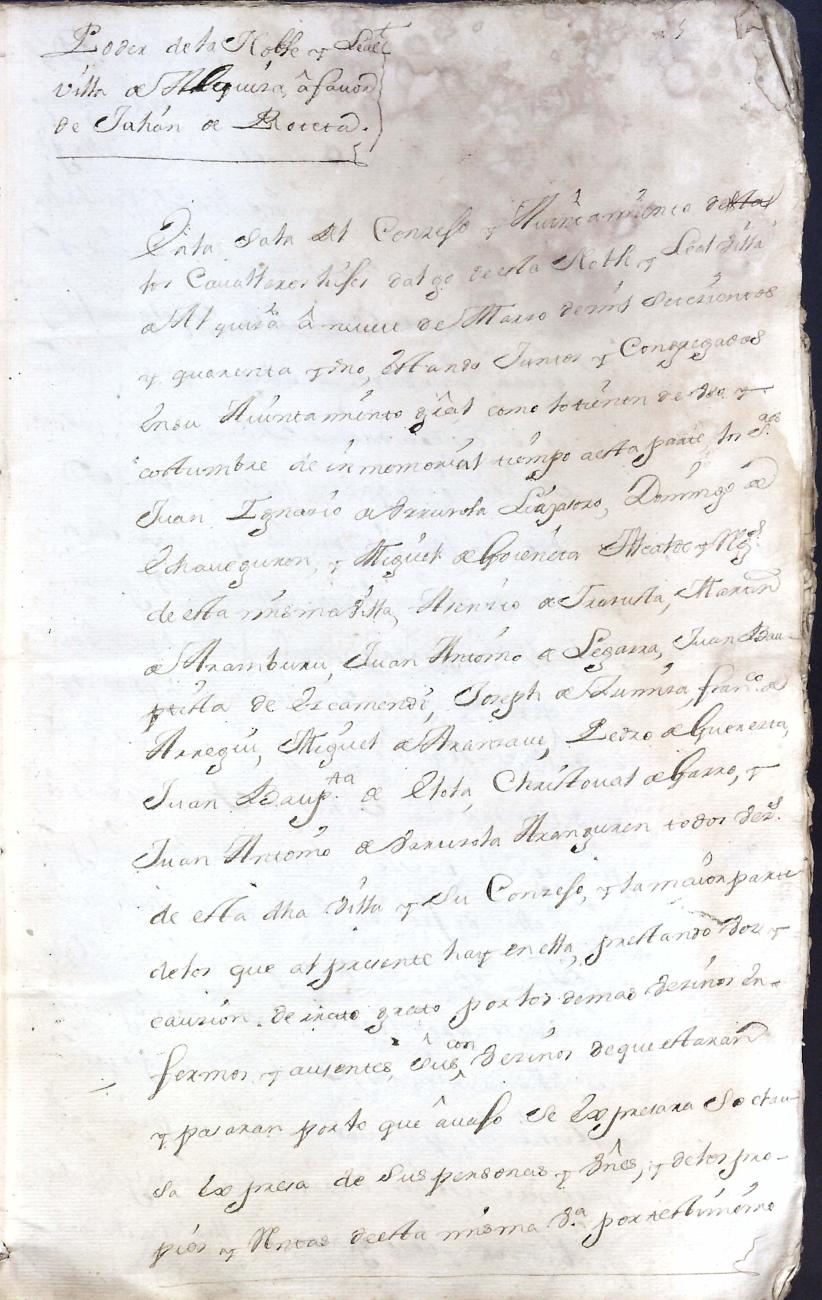 Poder de la Noble y Leal
villa de Alquiza, â favor
de Juhan de Roteta.
En la Sala del Conzejo y Aiuntamiento de
los Cavalleros hijos dalgo de esta Noble y Leal Villa
de Alquiza â nueve de Marzo de mil Setezientos
y quarenta y Uno, estando Juntos y Congregados
en su Aiuntamiento gral como lo tienen de Uso y
costumbre de inmemorial tiempo aesta parte, los S.res
Juan Ignazio de Yrrurola Lizasoro, Domingo de
Echaveguren, y Miguel de Goieneta Alcalde y Reg.s
de esta misma Villa, Asenzio de Yrazusta, Martin
de Aramburu, Juan Antonio de Legarra, Juan Bau-
ptista de Ercamendi, Joseph de Zumiza, fran.co de
Arregui, Miguel de Aranzave, Pedro de Guereta,
Juan Baup.ta de Elola, Christoval de Garro, y
Juan Antonio de Yrrurola Aranguren todos Vez.s
de esta dha Villa y Su Conzejo, y la maior parte
delos que al presente hay en ella, prestando Voz y
cauzion de rato grato por los demas Vezinos en-
fermos y ausentes, con Vezinos deque estaran
y pasaran por lo que âvajo Se Expresara So obli-
sa Expresa de Sus personas y Vnês, y delos pro-
pios y Rentas de esta misma V.a por testimonio